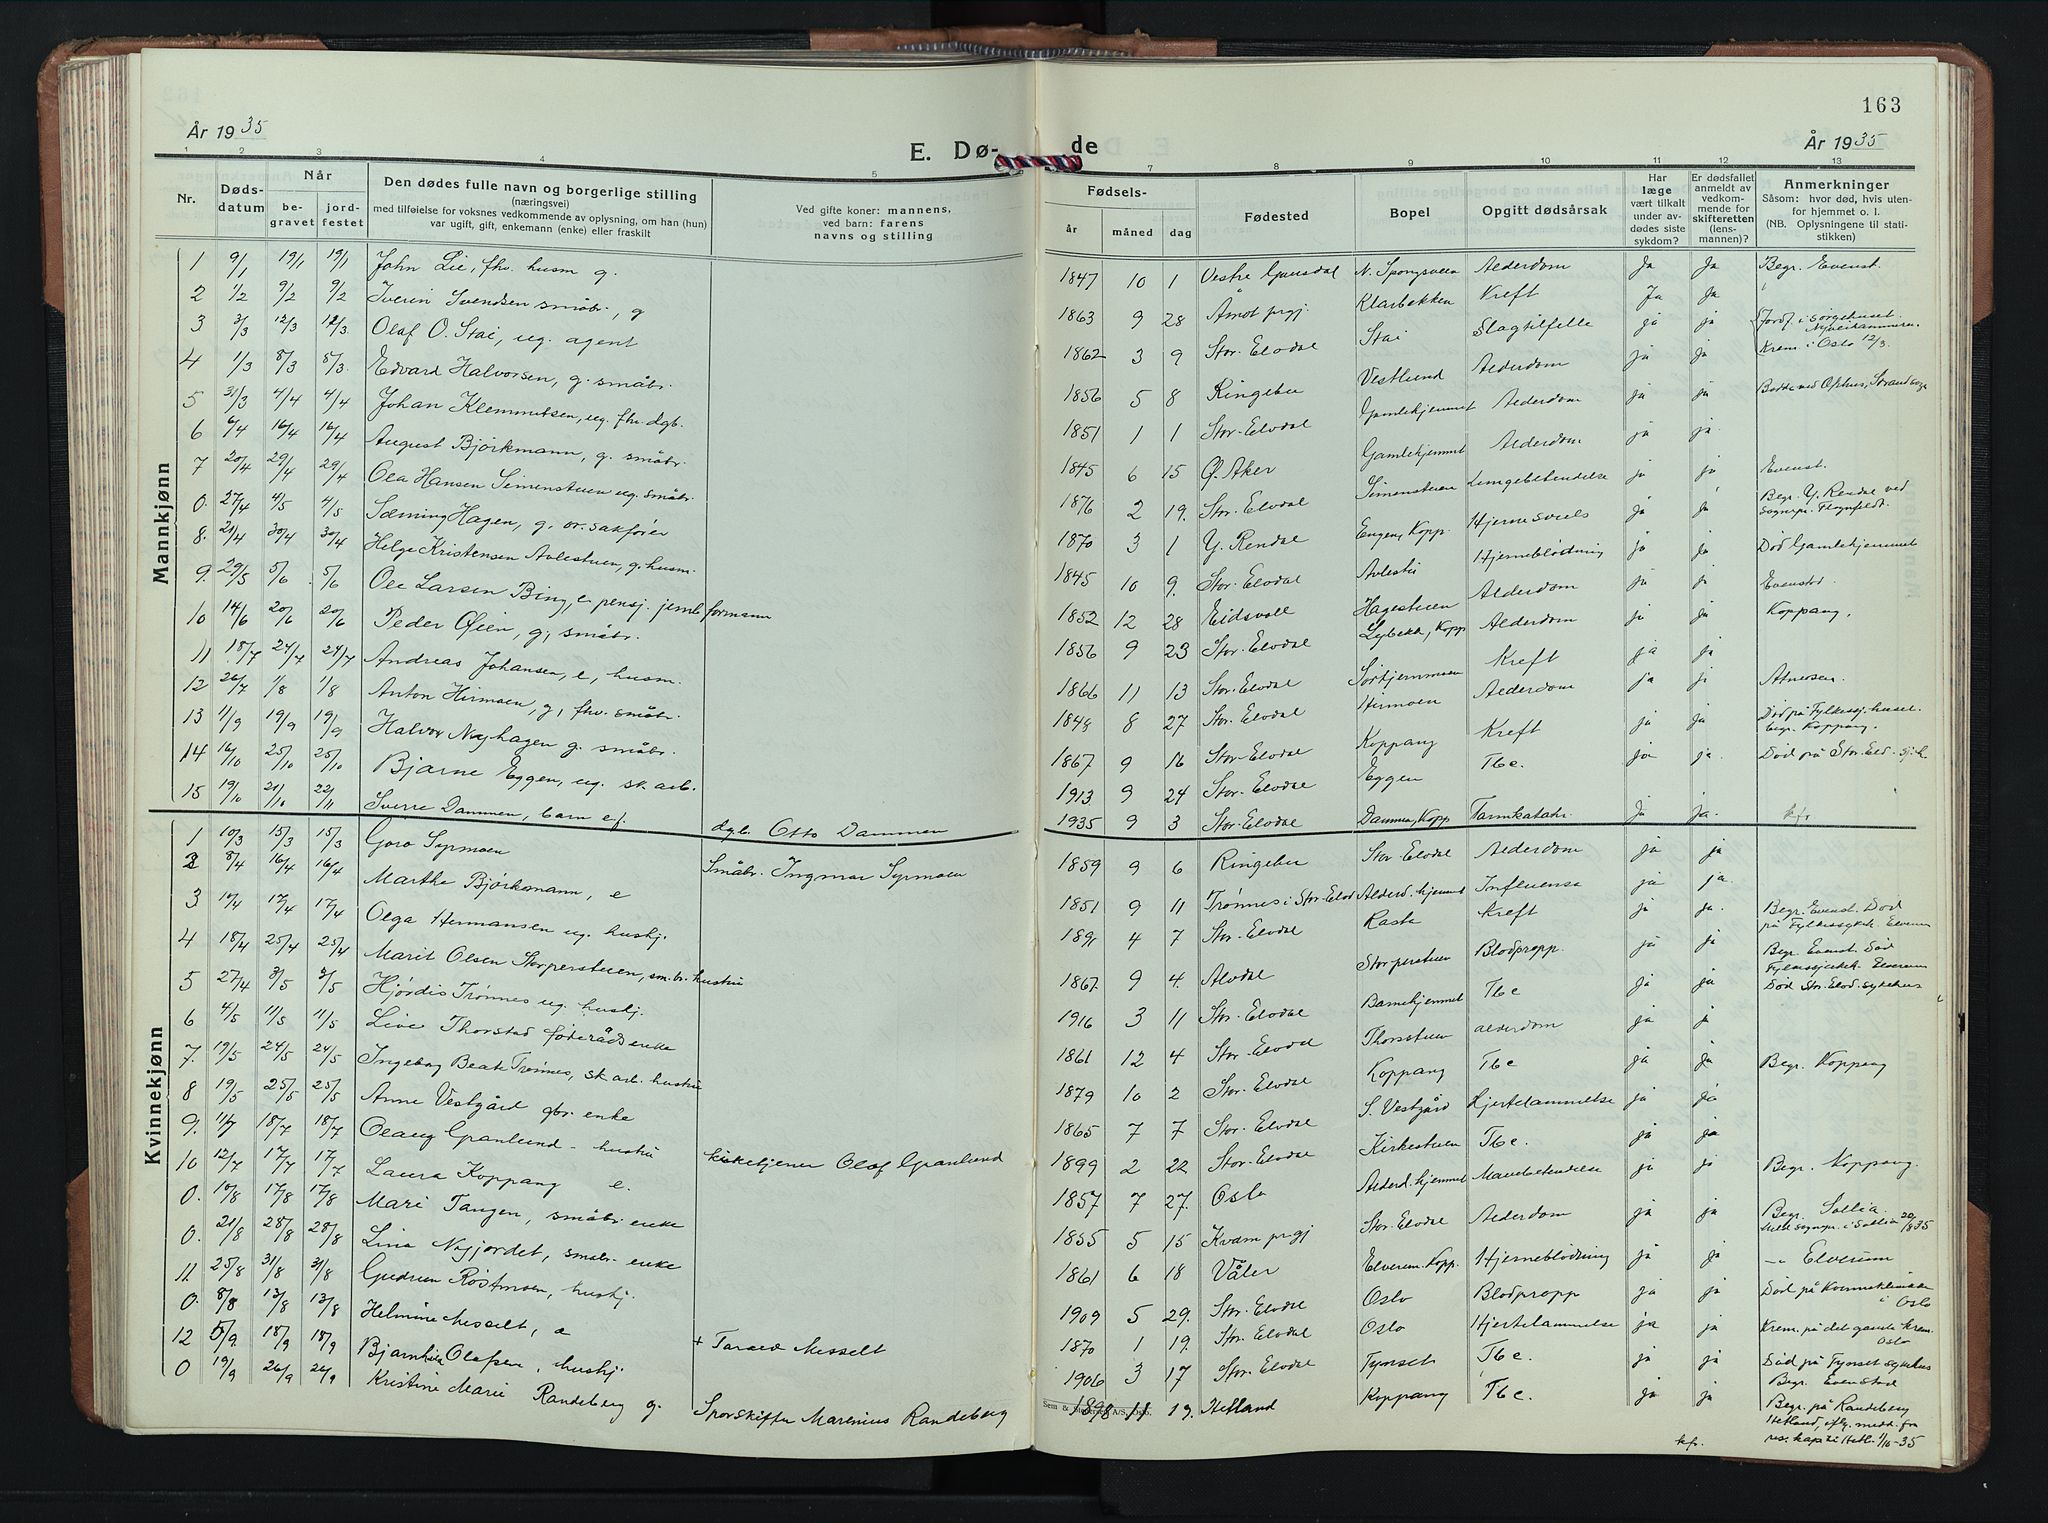 163
År 1935
E. Dø-
de
År 1935
1 2 3 4 5 7 8 9 10 11 12 13
Nr.
Døds-
datum
Når
be-
gravet
jord-
festet
Den dødes fulle navn og borgerlige stilling
(næringsvei)
med tilføielse for voksnes vedkommende av oplysning, om han (hun)
var ugift, gift, enkemann (enke) eller fraskilt
Ved gifte koner: mannens,
ved barn: farens
navns og stilling
Fødsels-
år måned dag
Fødested
Bopel
Opgitt dødsårsak
Har
læge
vært tilkalt
under av-
dødes siste
sykdom?
Er dødsfallet
anmeldt av
vedkom-
mende for
skifteretten
(lens-
mannen)?
Anmerkninger
Såsom: hvor død, hvis uten-
for hjemmet o. l.
(NB. Oplysningene til stati-
stikken)
Mannkjønn
1 9/1 19/1 19/1 John Lie, fhv. husm g. 1847 10 1 Vestre Gausdal Alderdom Ja Ja Begr. Evenst.
2 1/2 9/2 9/2 Iverin Svendsen småbr., g 1863 9 28 Åmot prgj. Klarbekken Kreft Ja Ja
3 3/3 12/3 12/3 Olaf O. Stai, ug. agent 1862 3 9 Stor-Elvdal Stai Slagtilfelle ja ja Jordf. i sørgehuset
Krem i Oslo 12/3.
4 1/3 8/3 8/3 Edvard Halvorsen, g. småbr. 1856 5 8 Ringebu Vestlund Alderdom ja ja
5 31/3 4/4 4/4 Johan Klemmetsen, ug. fhv. dgb. 1851 1 1 Stor-Elvdal Gamlehjemmet Alderdom ja ja
6 6/4 16/4 16/4 August Bjørkmann, g. småbr. 1845 6 15 Ø. Aker Gamlehjemmet Alderdom ja ja
7 20/4 29/4 29/4 Ola Hansen Simenstuen ug. småbr. 1876 2 19. Stor-Elvdal Simenstuen Lungebetendelse ja ja Evenst.
0. 27/4 4/5 4/5 Sæming Hagen, g. or. sakfører 1870 3 1 Y. Rendal Engen, Kopp Hjernesvuls ja ja Begr. Y. Rendal ved
8. 21/4 30/4 30/4 Helge Kristensen Avlestuen, g. husm. 1845 10 9. Stor-Elvdal Avlestu Hjerneblødning ja ja Død Gamlehjemmet
9. 29/5 5/6 5/6 Ole Larsen Bing, e. pensj. jernb.formann 1852 12 28 Eidsvoll Hagestuen Alderdom ja ja Evenstad
10 14/6 20/6 20/6 Peder Øien, g., småbr. 1856 9 23 Stor-Elvdal Alderdom ja ja Koppang.
11 18/7 24/7 24/7 Andreas Johansen, e, husm. 1866 11 13 Stor-Elvdal Kreft ja ja
12 26/7 1/8 1/8 Anton Hirmoen, g, fhv. småbr. 8 27 Stor-Elvdal Hirmoen Alderdom ja ja Atneosen.
13 11/9 19/9 19/9 Halvor Nyhagen g. småbr. 1867 9 16 Stor-Elvdal Koppang Kreft ja ja Død på Fylkessj.huset
begr. Koppang.
14 16/10 25/10 25/10 Bjarne Eggen, ug. sk.arb. 1913 9 24 Stor-Elvdal Eggen Tbc. ja ja. Død på Stor-Elvd. sjch.
15 19/10 21/10 22/11 Sverre Dammen, barn ef. dgb. Otto Dammen 1935 9 3 Stor-Elvdal Dammen, Kopp Tarmkatahr. Ja ja. kfr
Kvinnekjønn
1 10/3 15/3 15/3 Goro Syrmoen Småbr. Ingmar Syrmoen 1859 9 6 Ringebu Stor-Elvdal Alderdom ja ja
2 8/4 16/4 16/4 Marthe Bjørkmann, e 1851 9 11 Trønnes i Stor-Elvd Alderd.hjemmet Influensa ja ja.
3 10/4 17/4 17/4 Olga Hermansen ug. hushj. 4 7 Stor-Elvdal Rasta Kreft ja ja Begr. Evenst. Død
på Fylkessjukh. Elverum
4 18/4 25/4 25/4 Marit Olsen Storperstuen, sm.br. hustru 1867 9 4. Alvdal Storperstuen Blodpropp. ja ja Begr. Evenst. Død
Fylkessjukeh. Elverum
5 27/4 3/5 3/5 Hjørdis Trønnes ug. hushj. 1916 3 11 Stor-Elvdal Barnehjemmet Tbc ja ja Død Stor-Elvd. sykehus
6 4/5 11/5 11/5 Live Thorstad føderåds enke 1861 12 4 Stor-Elvdal Thorsstuen alderdom ja ja
7. 19/5 24/5 24/5 Ingeborg Beate Trønnes, sk.arb. hustru 1879 10 2 Stor-Elvdal Koppang Tbc ja ja Begr. Koppang
8 19/5 25/5 25/5 Anne Vestgård gbr. enke 1865 7 7 Stor-Elvdal S. Vestgård Hjertelammelse ja ja
9. 11/7 18/7 18/7 Olaug Granlund - hustru kirketjener Olaf Granlund 1899 2 22 Stor-Elvdal Kirkestuen Tbc. ja ja
10 12/7 17/7 17/7 Laura Koppang e. 1857 7 27. Oslo Alderd.hjemmet Mavebetendelse ja ja Begr. Koppang.
0. 10/8 17/8 17/8 Mari Tangen, småbr. enke 1855 5 15 Kvam prgj Stor-Elvdal Alderdom ja ja Begr. Sollia.
0. 21/8 28/8 28/8 Lina Nyjordet, småbr. enke 1861 6 18 Våler Elverum, Kopp. Hjerneblødning ja ja -" Elverum
11 25/8 31/8 31/8 Gudrun Røstmoen, hushj. 1909 5 29. Stor-Elvdal Oslo Blodpropp ja ja Død på Kvinneklinikken
i Oslo
0. 8/8 13/8 13/8 Helmine Messelt, e + Tarald Messelt 1870 1 19. Stor-Elvdal Oslo Hjertelammelse ja ja Krem. på det gamle krem.
Oslo
12 5/9. 18/9 18/9 Olafsen, hushj 1906 3 17 Stor-Elvdal Tynset Tbc. ja ja Død på Tynset sykehus
Begr. Evenstad
0 19/9 26/9 26/9 Kristine Marie Randeberg g. Sporskifter Marenius Randeberg 1898 11 19. Hetland Koppang Tbc. ja ja Begr. på Randeberg
Hetland, iflg. medd. fra
res. kap. i Hetl. 1/10-35
kfr.